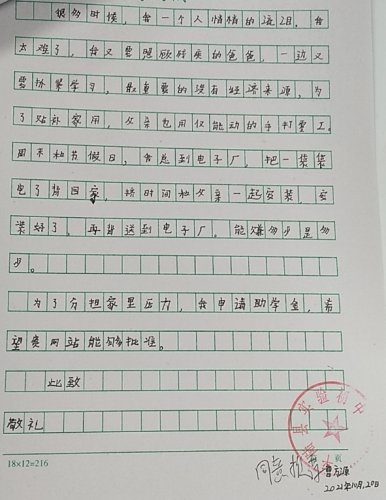 很多时候，会一个人悄悄的流泪，我
太难了，我又要照顾残疾的爸爸，一边又
要抓紧学习，最重要的没有经济来源，为
了贴补家用，父亲也用仅能动的手打零工。
周末和节假日，会总到电子厂，把一袋袋
电子背回家，挤时间和父亲一起安装，安
装好了，再背送到电子厂。能赚多少是多
少。
为了分担家里压力，我申请助学金，希
望爱网站能够批准。
此致
敬礼
18×12=216
同意推荐
曹
2021年10月20日
县实验初中